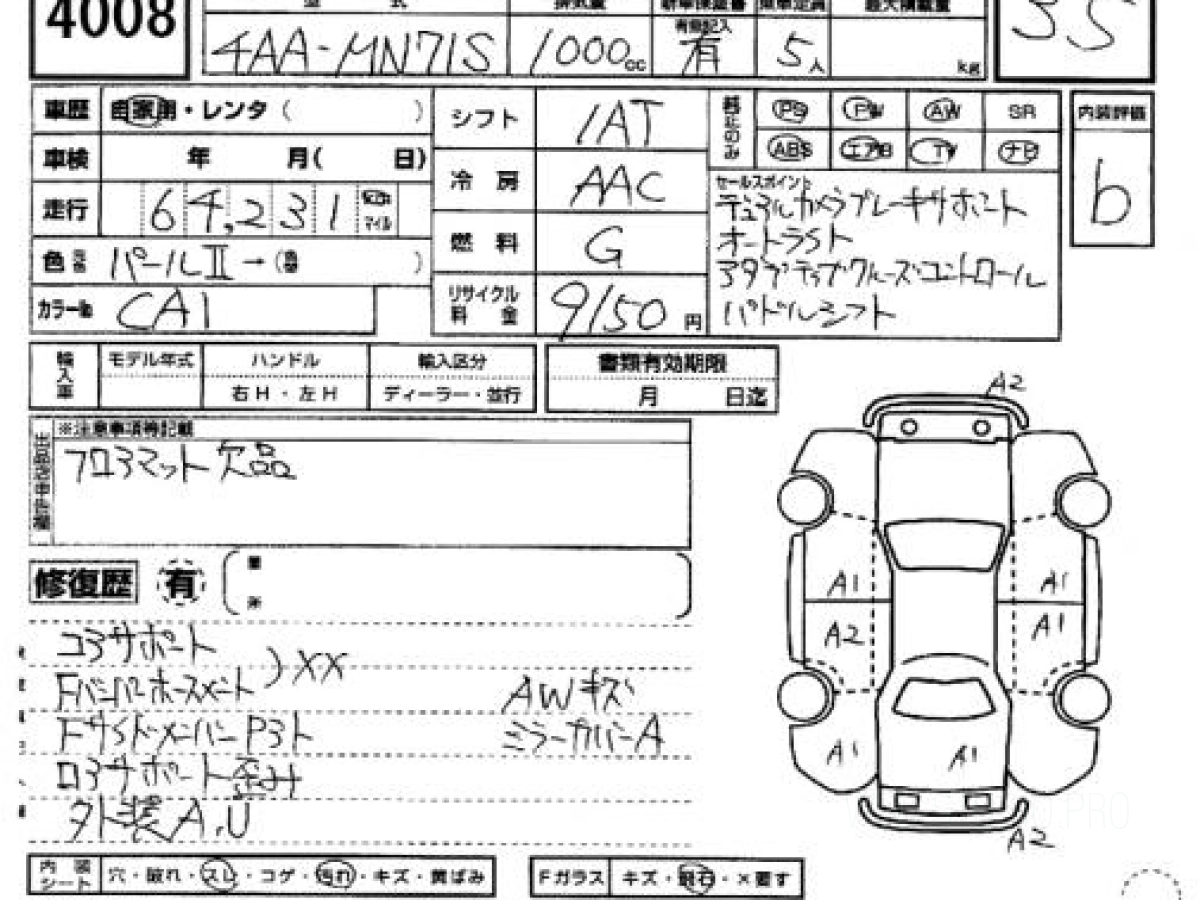 4008
型 式 排気量 新車保証書 乗車定員 最大積載量
有無記入
4AA-MN71S 1000cc 有 5人 kg
3.5
車歴 自家用・レンタ( )
車検 年 月( 日)
走行 64,231 km マイル
色 元色 パールII→(色替 )
カラーNo. CA1
シフト 1AT
冷房 AAC
燃料 G
リサイクル料金 9150円
純正のみ PS PW AW SR
ABS エアB TV ナビ
内装評価
b
セールスポイント
デュアルカメラブレーキサポート
オートライト
アダプティブクルーズコントロール
パドルシフト
輸入車 モデル年式 ハンドル 輸入区分
右H・左H ディーラー・並行
書類有効期限
月 日迄
※注意事項等記載
フロアマット欠品
修復歴 有
コアサポート
Fバンパーホースメント )XX
Fサイドメンバー
ロアサポート歪み
外装A,U
AWキズ
ミラーカバーA
A2
A1 A1
A2 A1
A1 A1
A2
PRO
内装シート 穴・破れ・スレ・コゲ・汚れ・キズ・黄ばみ
Fガラス キズ・飛石・X要す